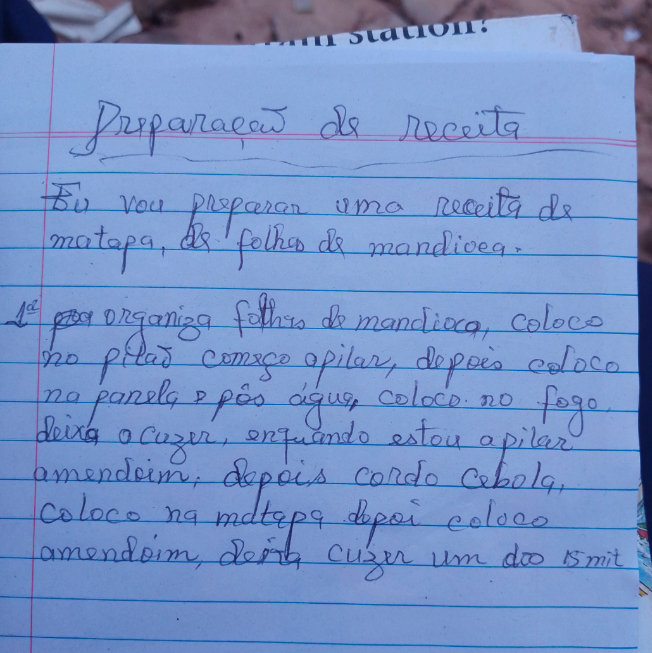 station?
Preparaçaõ de receita
Eu vou preparar uma receita de
matapa, de folhas de mandioca.
1º organiza folhas de mandioca, coloco
no pilaõ começo apilar, depois coloco
na panela, e pôs água, coloco no fogo
deixa acuzer, enquando estou apilar
amendoim, depois cordo cebola,
coloco na matapa depoi coloco
amendoim, deixa cuzer um dos 15 mit